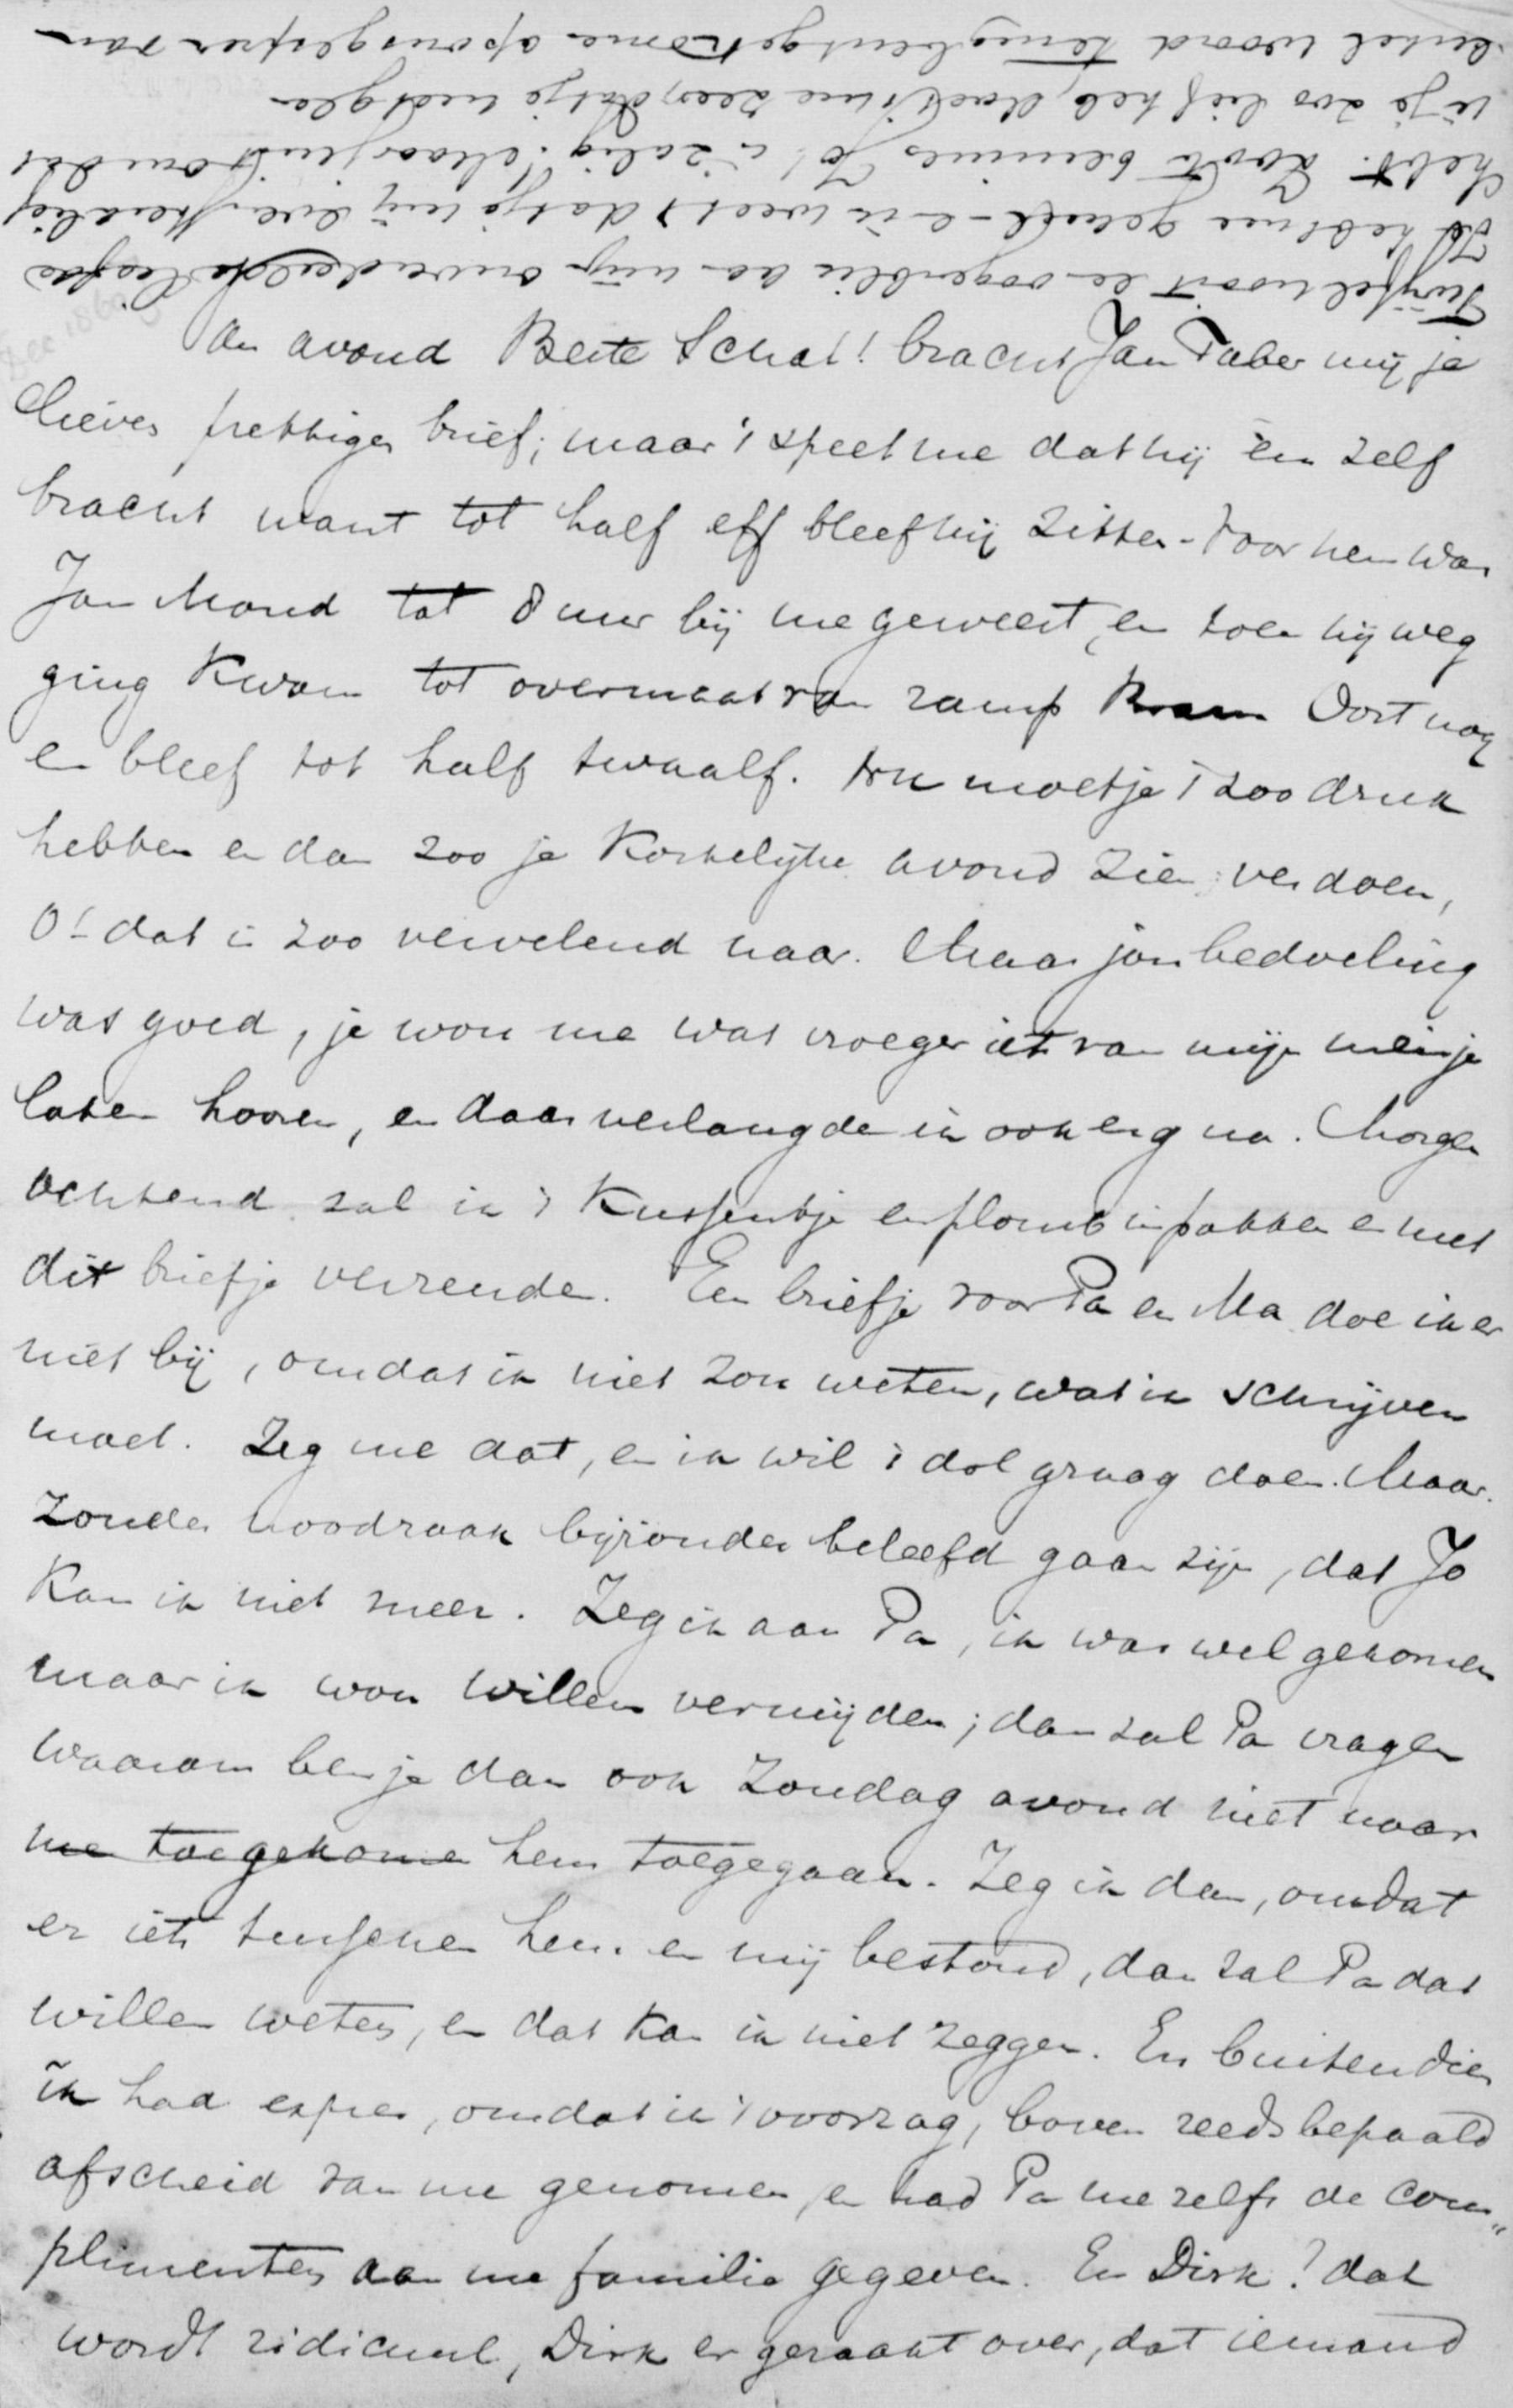 Van avond Beste Schat! bracht Jan Faber mij je
lieven prettigen brief; maar 't speet me dat hij 'em zelf
bracht want tot half elf bleef hij zitten - Voor hem was
Jan Mond tot 8 uur bij me geweest, en toen hij weg
ging kwam tot overmaat van ramp Oort nog
en bleef tot half twaalf. Nu moet je 't zoo druk
hebben en dan zoo je kostelijke avond zien verdoen,
O! dat is zoo vervelend naar. Maar jou bedoeling
was goed, je wou me wat vroeger iets van mijn meisje
laten hooren, en daar verlangde ik ook erg na. Morgen
ochtend zal ik 't Kussentje en plomb inpakken en met
dit briefje verzenden. Een briefje voor Pa en Ma doe ik er
niet bij, omdat ik niet zou weten, wat ik schrijven
moet. Zeg me dat, en ik wil 't dol graag doen. Maar
zonder noodzaak bijzonder beleefd gaan zijn, dat Jo
kan ik niet meer. Zeg ik aan Pa, ik was wel gekomen
maar ik wou Willem vermijden; dan zal Pa vragen
waarom ben je dan ook Zondag avond niet naar
me toegekomen hem toegegaan. Zeg ik dan, omdat
er iets tusschen hem en mij bestond, dan zal Pa dat
willen weten, en dat kan ik niet zeggen. En buitendien
ik had expres, omdat ik 't voorzag, boven reeds bepaald
afscheid van me genomen, en had Pa me zelfs de com„
plimenten aan me familie gegeven. En Dirk? dat
wordt ridicuul, Dirk er geraakt over, dat iemand
Twijfel nooit een oogenblik aan mijn onverdeelde liefde
Jo hebt me gemaakt - en ik weet dat je mij even
hebt. Zoo te beminnen Jo! is zalig! Maar juist omdat
ik je zoo lief heb, doet 't me zeer, dat je niet geen
enkel woord terugbent gekomen op ons gesprek van